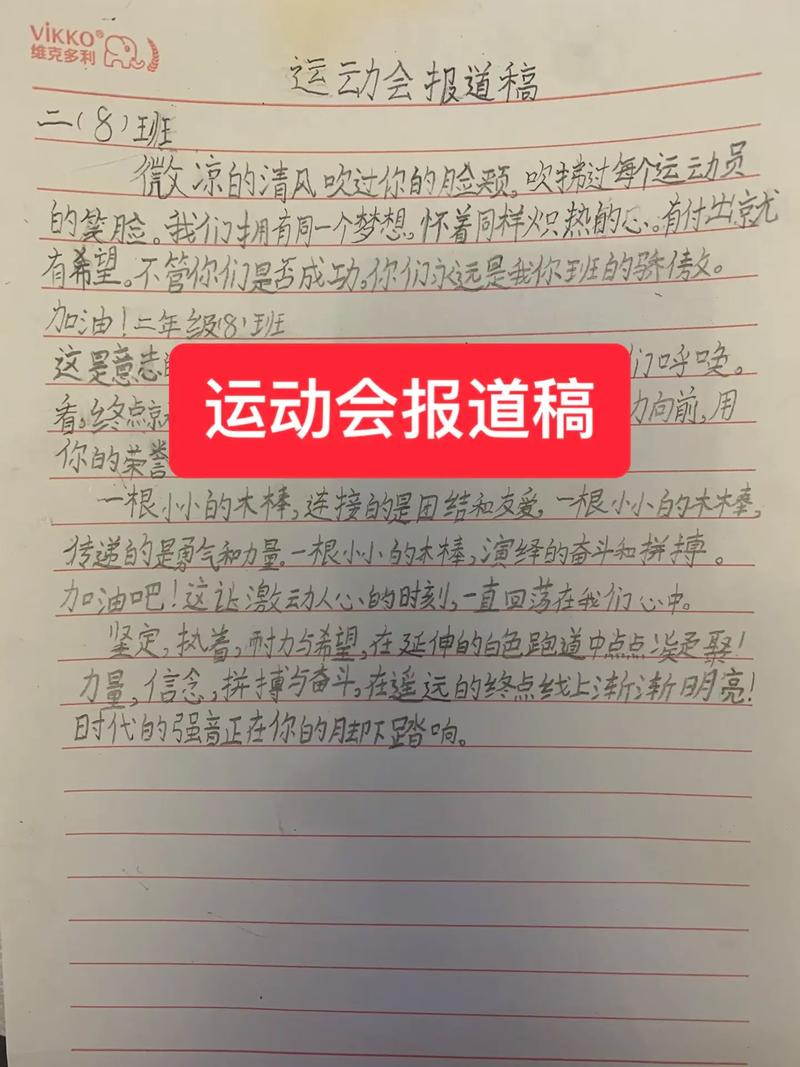 ViKKO®
维克多利
运动会报道稿
二(8)班
微凉的清风吹过你的脸颊。吹拂过每个运动员
的笑脸。我们拥有同一个梦想。怀着同样炽热的心。有付出就尤
有希望。不管你们是否成功。你们永远是我你班的骄傲。
加油!二年级(8)班
这是意志的 们呼唤。
看,终点就 力向前,用
运动会报道稿
你的荣誉
一根小小的木棒,连接的是团结和友爱,一根小小的木棒,
传递的是勇气和力量。一根小小的木棒,演绎的奋斗和拼搏。
加油吧!这让激动人心的时刻,一直回荡在我们心中。
坚定,执着,耐力与希望,在延伸的白色跑道中点点凝聚!
力量,信念,拼搏与奋斗,在遥远的终点线上渐渐明亮!
时代的强音正在你的脚下踏响。